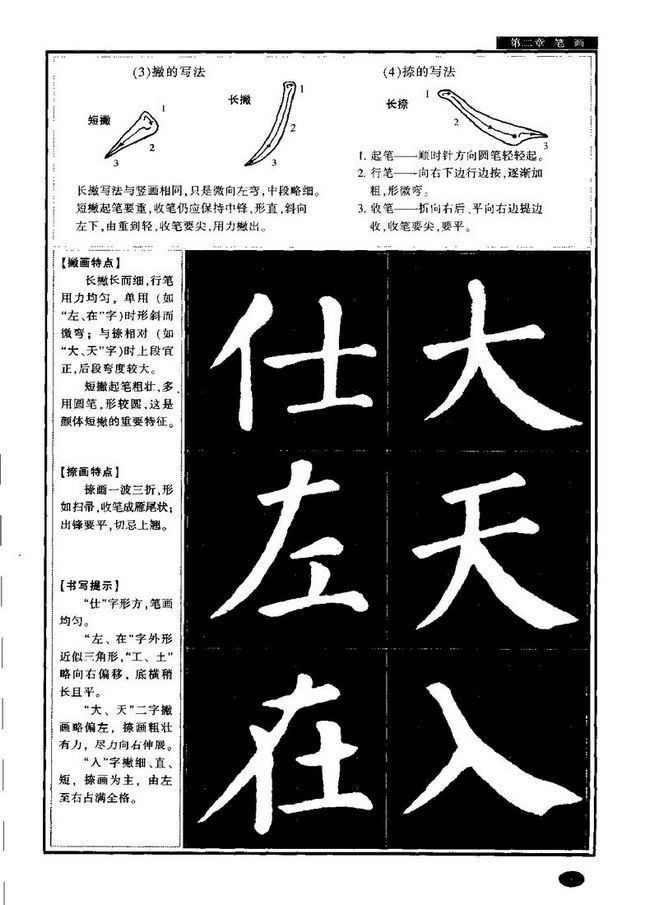 第二章 笔 画
(3)撇的写法
短撇
1
2
3
长撇
1
2
3
长撇写法与竖画相同,只是微向左弯,中段略细。
短撇起笔要重,收笔仍应保持中锋,形直,斜向
左下,由重到轻,收笔要尖,用力撇出。
(4)捺的写法
长捺
1
2
3
1. 起笔——顺时针方向圆笔轻轻起。
2. 行笔——向右下边行边按,逐渐加
粗,形微弯。
3. 收笔——折向右后、平向右边提边
收,收笔要尖,要平。
【撇画特点】
长撇长而细,行笔
用力均匀,单用(如
“左、在”字)时形斜而
微弯;与捺相对(如
“大、天”字)时上段宜
正,后段弯度较大。
短撇起笔粗壮,多
用圆笔,形较圆,这是
颜体短撇的重要特征。
【捺画特点】
捺画一波三折,形
如扫帚,收笔成雁尾状;
出锋要平,切忌上翘。
【书写提示】
“仕”字形方,笔画
均匀。
“左、在”字外形
近似三角形,“工、土”
略向右偏移,底横稍
长且平。
“大、天”二字撇
画略偏左,捺画粗壮
有力,尽力向右伸展。
“入”字撇细、直、
短,捺画为主,由左
至右占满全格。
仕 大
左 天
在 入